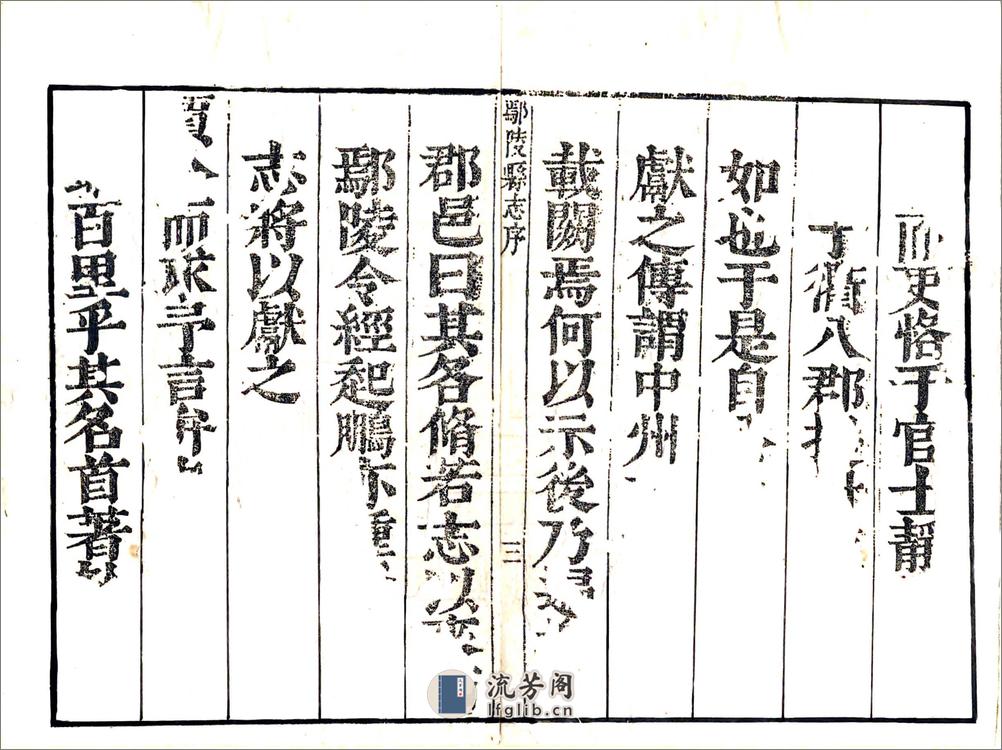 吏恪于官士靜
于衛八郡
如也于是自
獻之傳謂中州
載闕焉何以示後乃
鄢陵縣志序
三
郡邑曰其各脩若志以
鄢陵令經起鵬亦重
志將以獻之
而求予言弁
百里乎其名首著
流芳阁
lfglib.cn